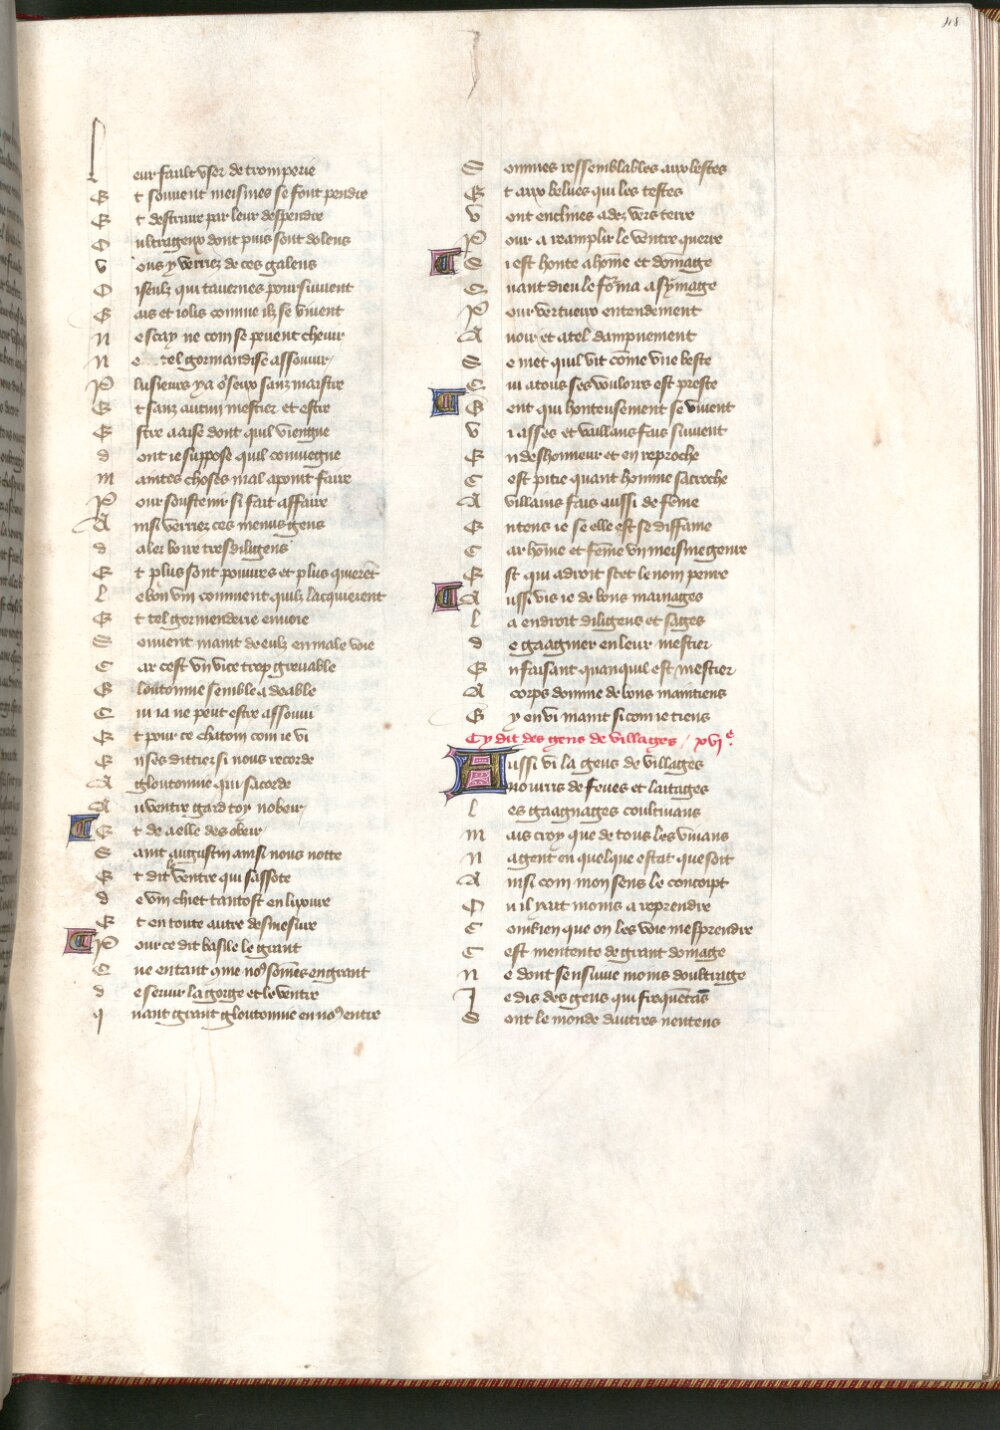 48
Leur fault user de tromperie
Et souvent meismes se font pendre
Et destruire par leur despendre
Oultrageux dont puis sont dolens
Vous y verriez de ces galens
Oiseulx qui tavernes poursuivent
Gais et jolis comme ilz se vivent
Ne scay ne com se pevent chevir
Ne tel gormandise assouvir
Plusieurs y a oyseux sanz maistre
Et sanz aucun mestier et estre
Estre a aise dont quil viengne
dont je suppose quil conviegne
maintes choses mal apoint faire
Pour soustenir si fait affaire
Ainsi verriez ces menus gens
aler boire tres diligens
Et plus sont povures et plus quierēt
Le bon vin comment quilz lacquierent
Et tel gormenderie envoie
Souvent maint deulz en male voie
Car cest un vice trop grevable
Gloutonnie semble a deable
Cui ja ne peut estre assouvi
Et pour ce chatom com je vi
En ses dittiez si nous recorde
A gloutonnie qui sacorde
Au ventre gard toy nobeir
Et de a elle desobeir
Saint augustin ainsi nous notte
Et dit le ventre qui sassote
de vin chiet tantost en luxure
Et en toute autre desmesure
Pour ce dit basile le grant
Que en tant ꝯme noꝰ somēs engrant
de servir la gorge et le ventre
quant grant gloutonnie en noꝰ entre
Sommes ressemblables aux bestes
Et aux belues qui les testes
Ont enclines adez vers terre
Pour a reamplir le ventre querre
Si est honte a home et domage
Quant dieu le forma a sy̅mage
Pour vertueux entendement
Avoir et a tel dampnement
Se met quil vit cōme une beste
Cui a tous ses vouloirs est preste
Gent qui honteusement se vivent
Viasses et vaillans fais suivent
En deshonneur et en reproche
Cest pitie quant homme sacroche
A villains fais aussi de fēme
Entens je se elle est se diffame
Car hōme et fēme un meisme genre
Est qui a droit scet le nom penre
Aussi vis je de bons mariages
La endroit diligens et sages
de gaagnier en leur mestier
En faisant quanquil est mestier
A corps donne de bons maintiens
Gy en vi maint si com je tiens
Cy dit des gens de villages / xviᵉ.
Aussi vi la gens de villages
nourris de feves et laitages
Les gaagnages coultivans
mais croy que de tous les vivans
nagent en quelque estat que soit
Ainsi com mon sens le conçoipt
Qu il nait moins a reprendre
Combien que on les voie mesprendre
Cest mentente de grant domage
Ne dont sensuive moins doultrage
Je dis des gens qui frequentās
Sont le monde dautres nentens